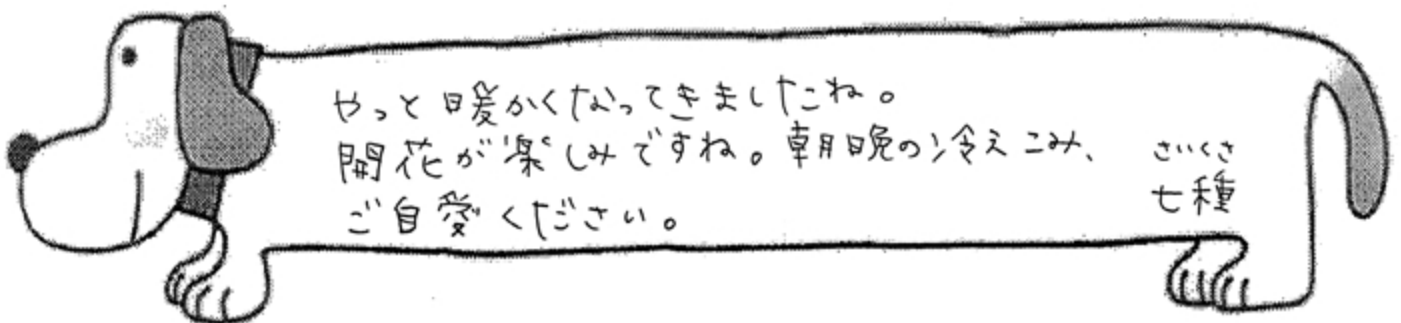 やっと暖かくなってきましたね。
開花が楽しみですね。朝晩の冷えこみ、
ご自愛ください。
さいくさ
七種